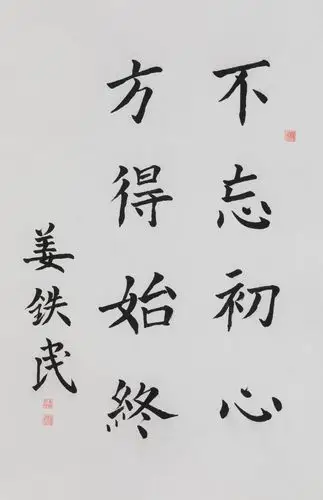 不忘初心
方得始終
姜鉄民